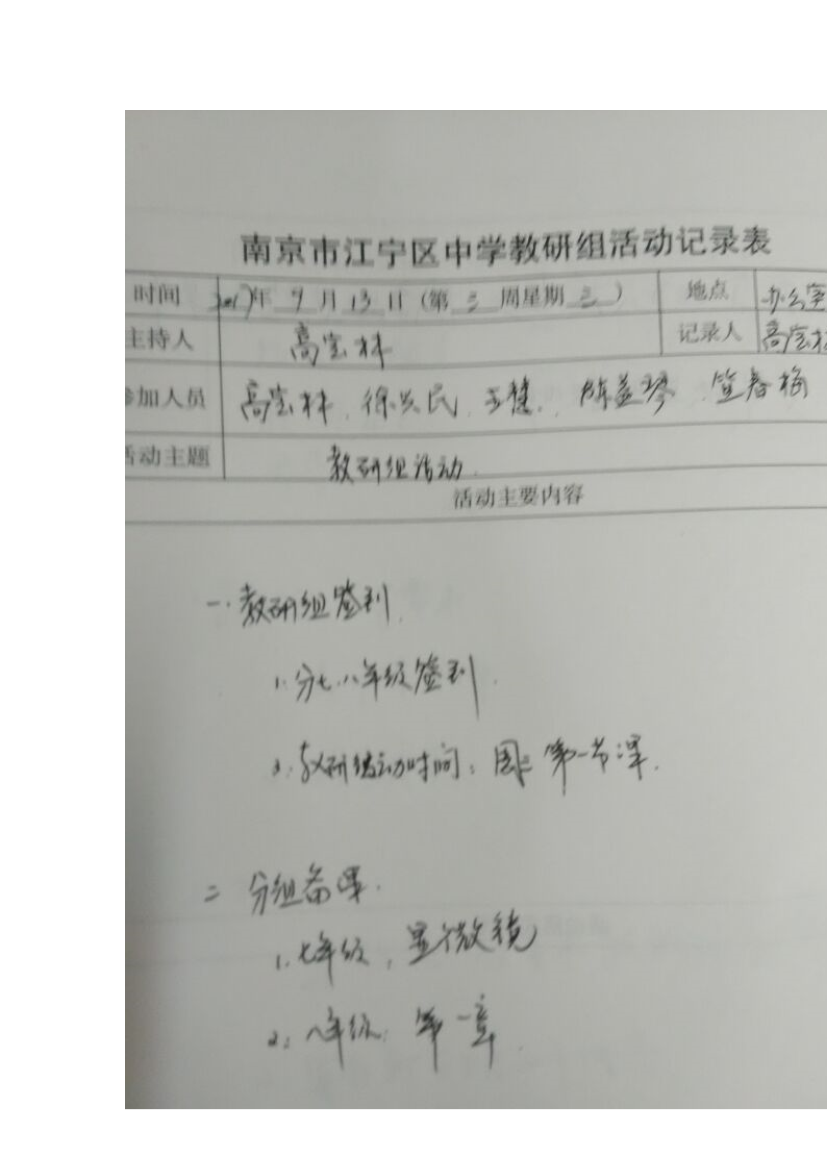 南京市江宁区中学教研组活动记录表
时间 2017年 9 月 13 日 (第 三 周星期 三 ) 地点 办公室
主持人 高宝林 记录人 高宝林
参加人员 高宝林、徐兴民、王健、陈益琴、笪春梅
活动主题 教研组活动.
活动主要内容
一.教研组签到
1.分七.八年级签到.
2.教研活动时间:周三第一节课.
二 分组备课.
1.七年级,显微镜
2:八年级:第一章